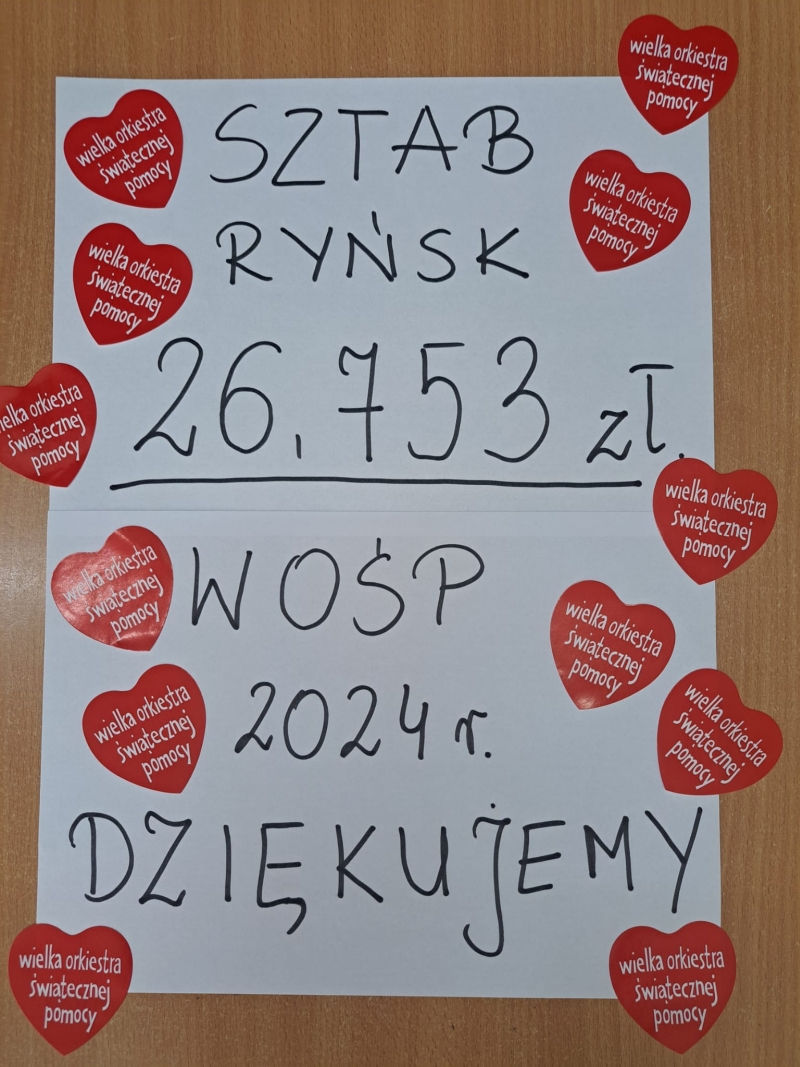 wielka orkiestra
świątecznej
pomocy
wielka orkiestra
świątecznej
pomocy
SZTAB
wielka orkiestra
świątecznej
pomocy
RYŃSK
wielka orkiestra
świątecznej
pomocy
26.753 zł.
wielka orkiestra
świątecznej
pomocy
wielka orkiestra
świątecznej
pomocy
WOŚP
wielka orkiestra
świątecznej
pomocy
wielka orkiestra
świątecznej
pomocy
2024 r.
wielka orkiestra
świątecznej
pomocy
wielka orkiestra
świątecznej
pomocy
DZIĘKUJEMY
wielka orkiestra
świątecznej
pomocy
wielka orkiestra
świątecznej
pomocy